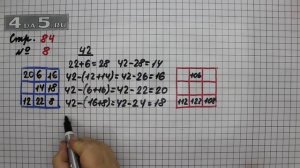 4DA5.RU
Стр. 84
№ 8
42
22+6=28 42-28=14
42-(12+14)=42-26=16
42-(6+16)=42-22=20
42-(16+8)=42-24=18
20 6 16
14 18
12 22 8
106
112 122 108